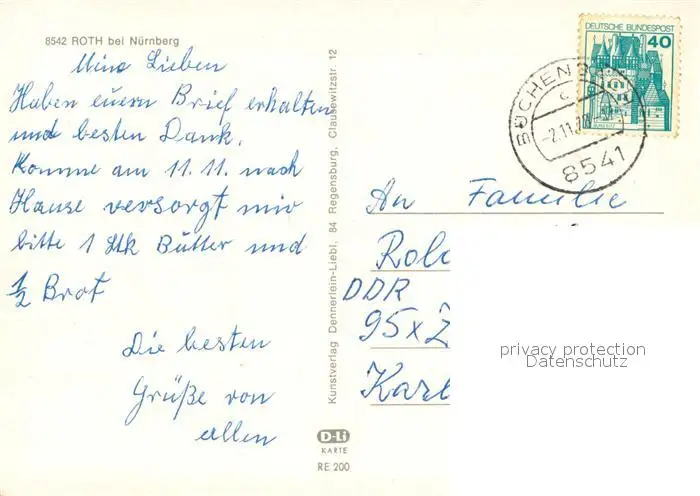 8542 ROTH bei Nürnberg
Meine Lieben
Haben euern Brief erhalten
und besten Dank.
Komme am 11.11. nach
Hause versorgt mir
bitte 1 Stk Butter und
1/2 Brot
Die besten
Grüße von
allen
Kunstverlag Dennerlein-Liebl, 84 Regensburg, Clausewitzstr. 12
D-Li
KARTE
RE 200
DEUTSCHE BUNDESPOST
40
BÜCHENB
-2.11.78
8541
An Familie
DDR
95
privacy protection
Datenschutz